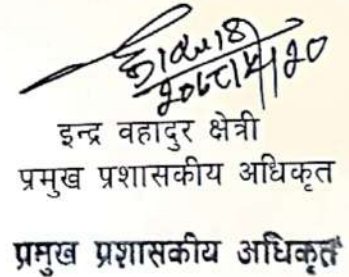 इन्द्र वहादुर क्षेत्री
प्रमुख प्रशासकीय अधिकृत
प्रमुख प्रशासकीय अधिकृत